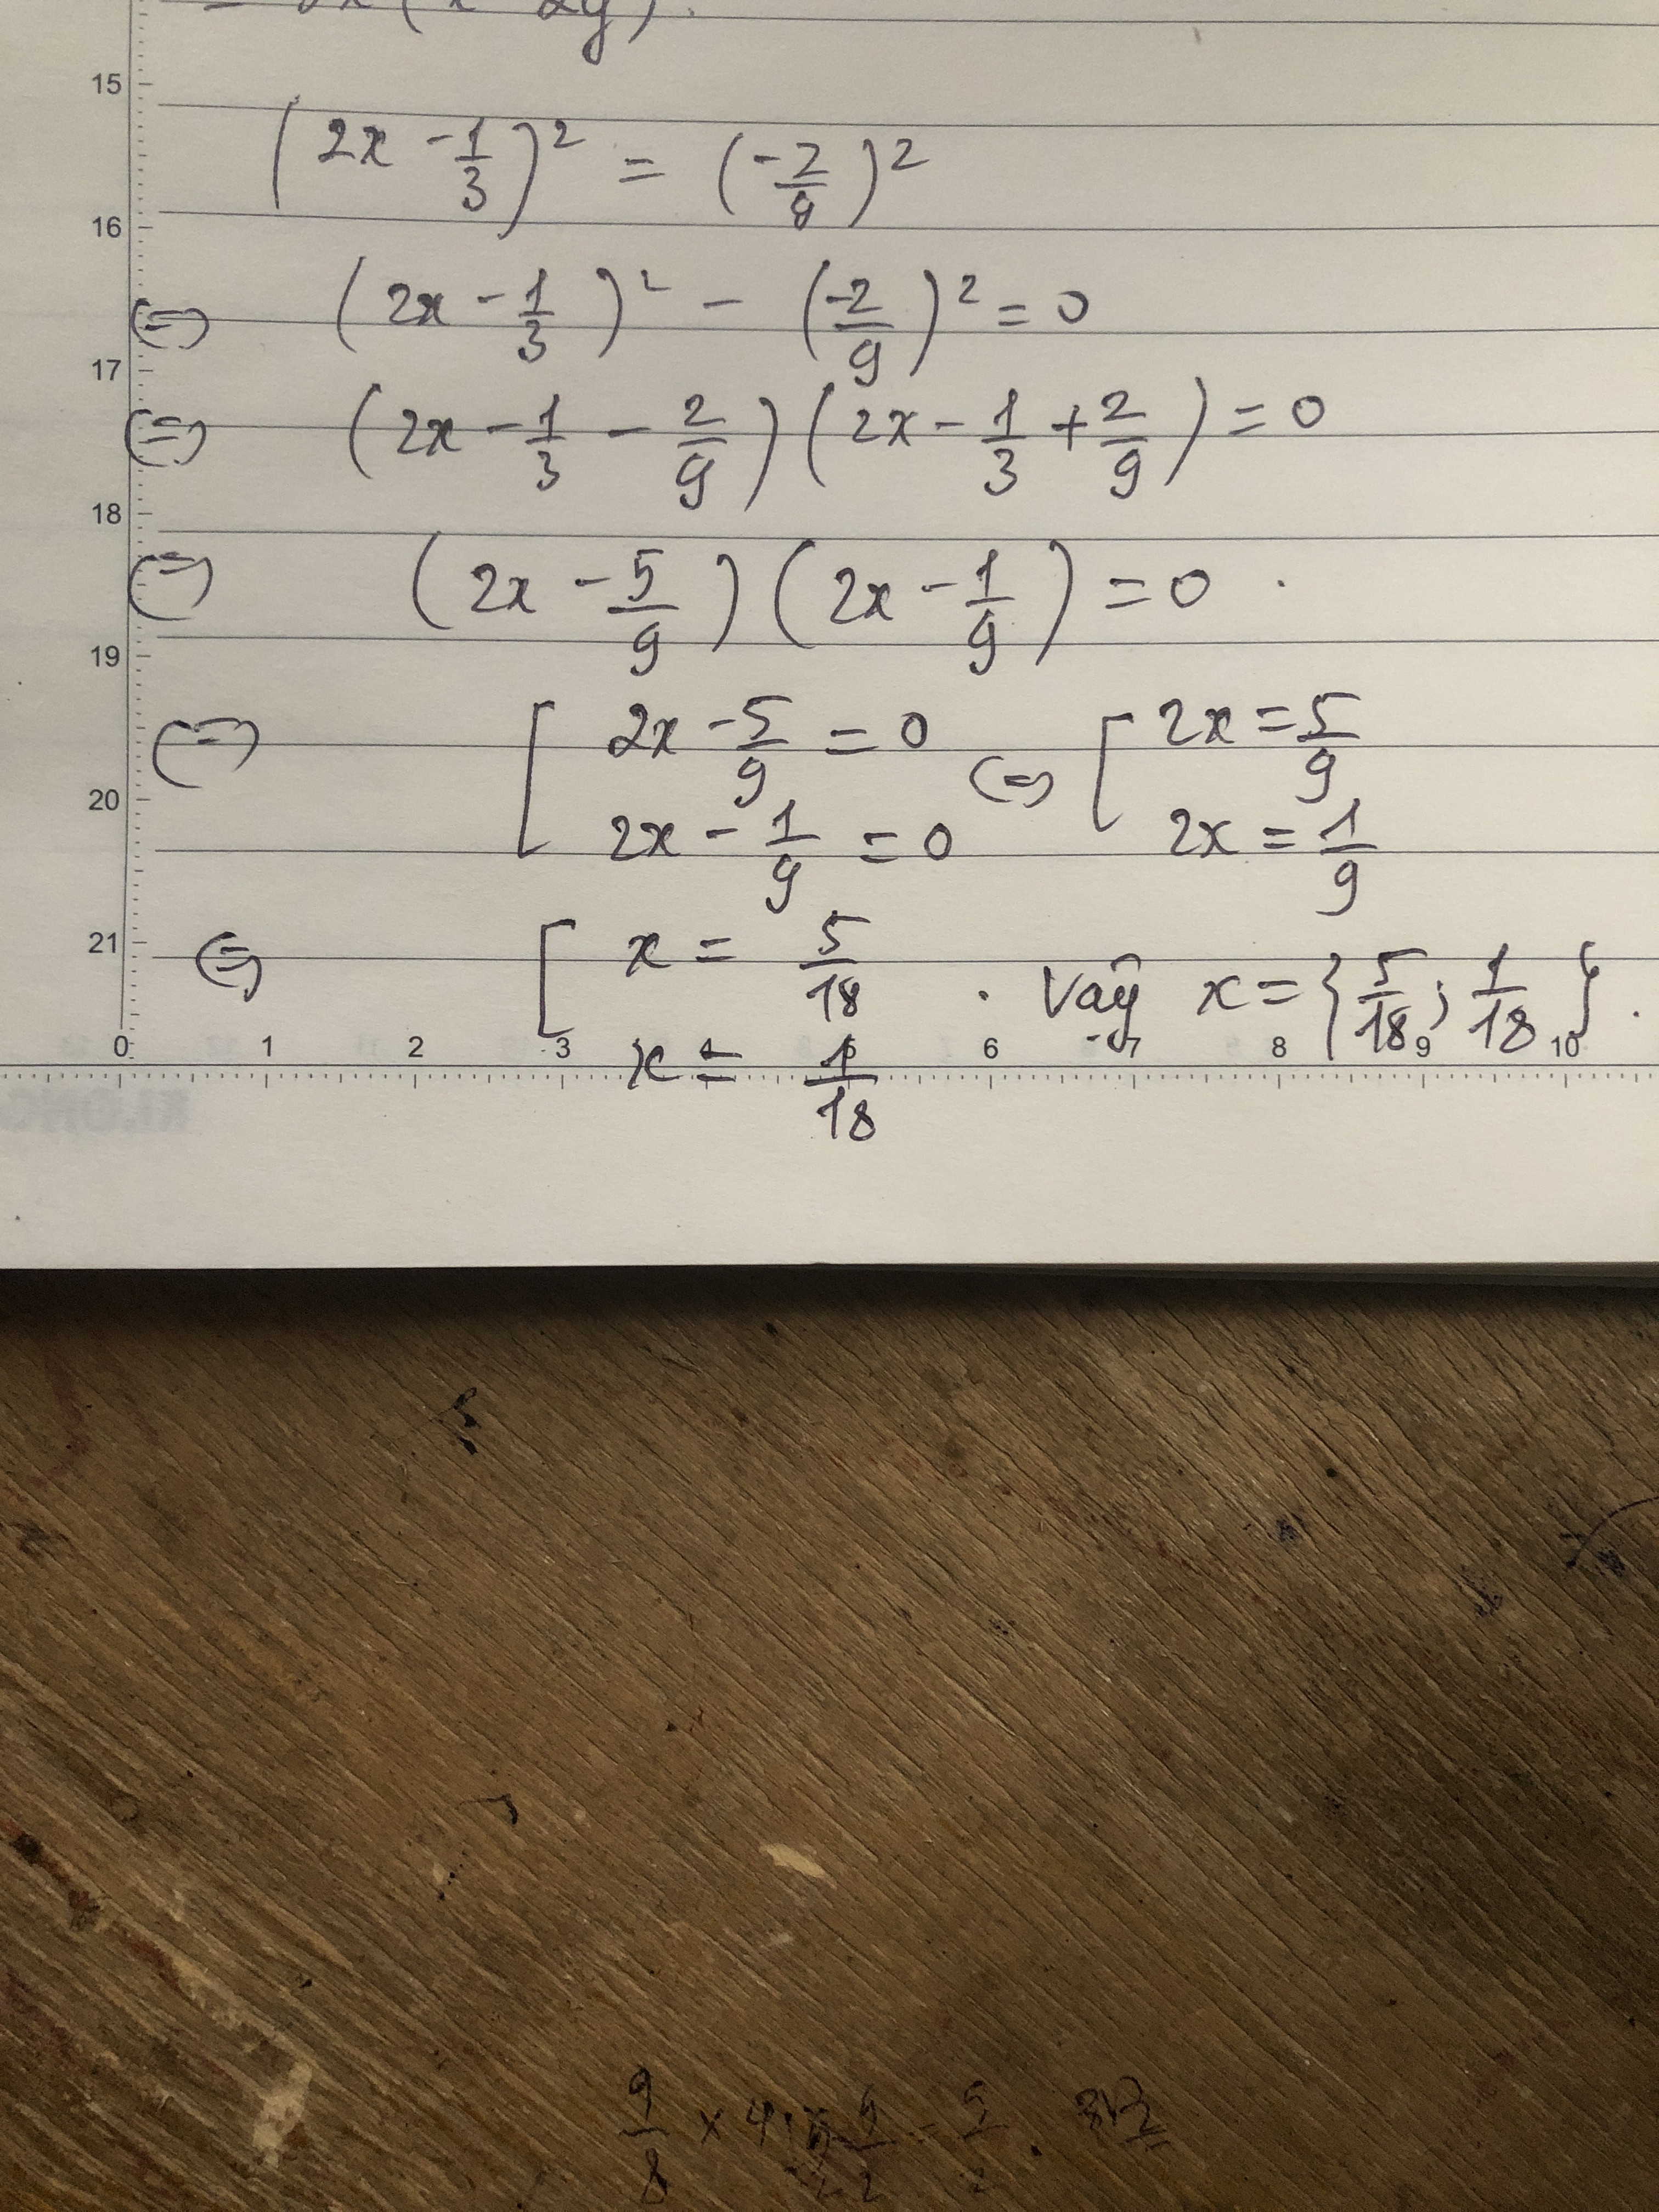 15
(2x - 1/3)² = (-2/9)²
16
(=) (2x - 1/3)² - (-2/9)² = 0
17
(=) (2x - 1/3 - 2/9)(2x - 1/3 + 2/9) = 0
18
(=) (2x - 5/9)(2x - 1/9) = 0 .
19
(=) [ 2x - 5/9 = 0 (=) [ 2x = 5/9
20
2x - 1/9 = 0 2x = 1/9
21
(=) [ x = 5/18 . Vậy x = {5/18 ; 1/18} .
0 1 2 3 4 5 6 7 8 9 10
x = 1/18
9/8 × 4